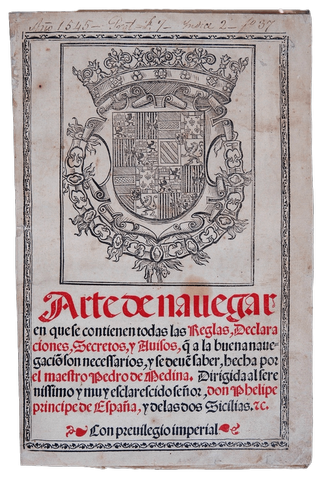 Año 1545
Arte de nauegar
en que se contienen todas las Reglas, Declara
ciones, Secretos, y Auisos, q̄ a la buena naue-
gaciō son necessarios, y se deuē saber, hecha por
el maestro Pedro de Medina. Dirigida al sere
nissimo y muy esclarescido señor, don Phelipe
principe de España, y de las dos Sicilias. ⁊c.
Con preuilegio imperial.